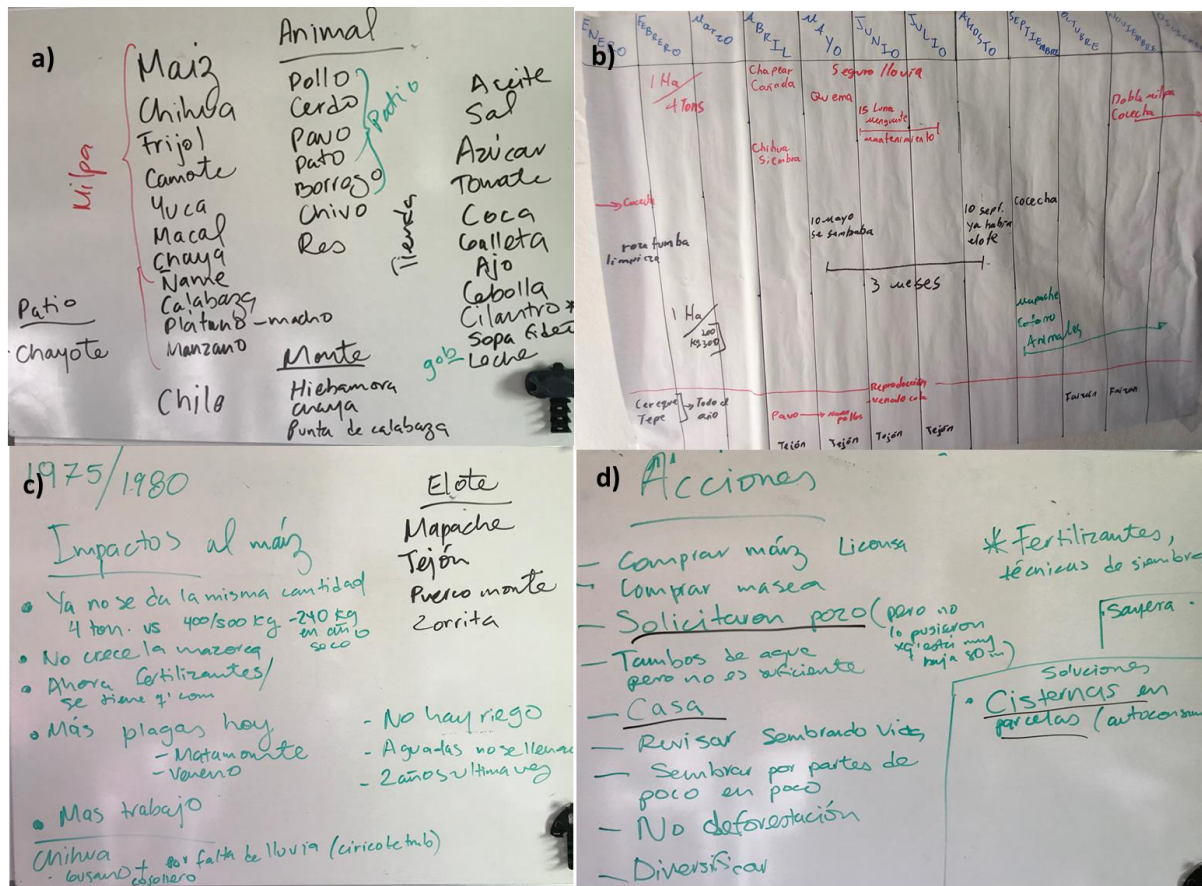 a)
Animal
Maiz
Chihua
Frijol
Camote
Yuca
Macal
Chaya
Ñame
Calabaza
Platano-macho
Manzano
Milpa
Patio
Chayote
Chile
Pollo
Cerdo
Pavo
Pato
Borrego
Chivo
Res
Patio
Monte
Hiebamora
Chaya
Punta de calabaza
Tienda
Aceite
Sal
Azúcar
Tomate
Coca
Galleta
Ajo
Cebolla
Cilantro *
Sopa fideo
gob Leche
b)
ENERO FEBRERO Marzo ABRIL MAYO JUNIO JULIO AGOSTO SEPTIEMBRE OCTUBRE
1 Ha
4 Tons
Chapear
Cañada
Chihua
Siembra
Quema
Seguro lluvia
15 Luna
menguante
mantenimiento
Doble milpa
Cosecha
Cosecha
roza tumba
limpieza
10 Mayo
se sembraba
10 sept.
ya había
elote
Cocecha
3 meses
1 Ha
200
KG 300
Mapache
Animales
Cereque
Tepe
Todo el
año
Pavo
pollos
Reproducción
venado cola
Faizán Faizan
Tejón Tejón Tejón Tejón
c)
1975/1980
Impactos al maíz
• Ya no se da la misma cantidad
4 ton. vs 400/500 kg -240 kg
en año
seco
• No crece la mazorca
• Ahora fertilizantes/
se tiene q' com
• Más plagas hoy
- Matamonte
- Veneno
• Mas trabajo
Chihua
• Gusano +
por falta de lluvia (ciricote tmb)
Elote
Mapache
Tejón
Puerco monte
Zorrita
- No hay riego
- Aguadas no se llenan
- 2 años ultima vez
d)
Acciones
- Comprar maíz Liconsa
- Comprar maseca
- Solicitaron pozo (pero no
lo pusieron
xq' está muy
baja 80 m)
- Tambos de agua
pero no es suficiente
- Casa
- Revisar Sembrando Vida
- Sembrar por partes de
poco en poco
- No deforestación
- Diversificar
* Fertilizantes,
técnicas de siembra
Soluciones
• Cisternas en
parcelas (autoconsum